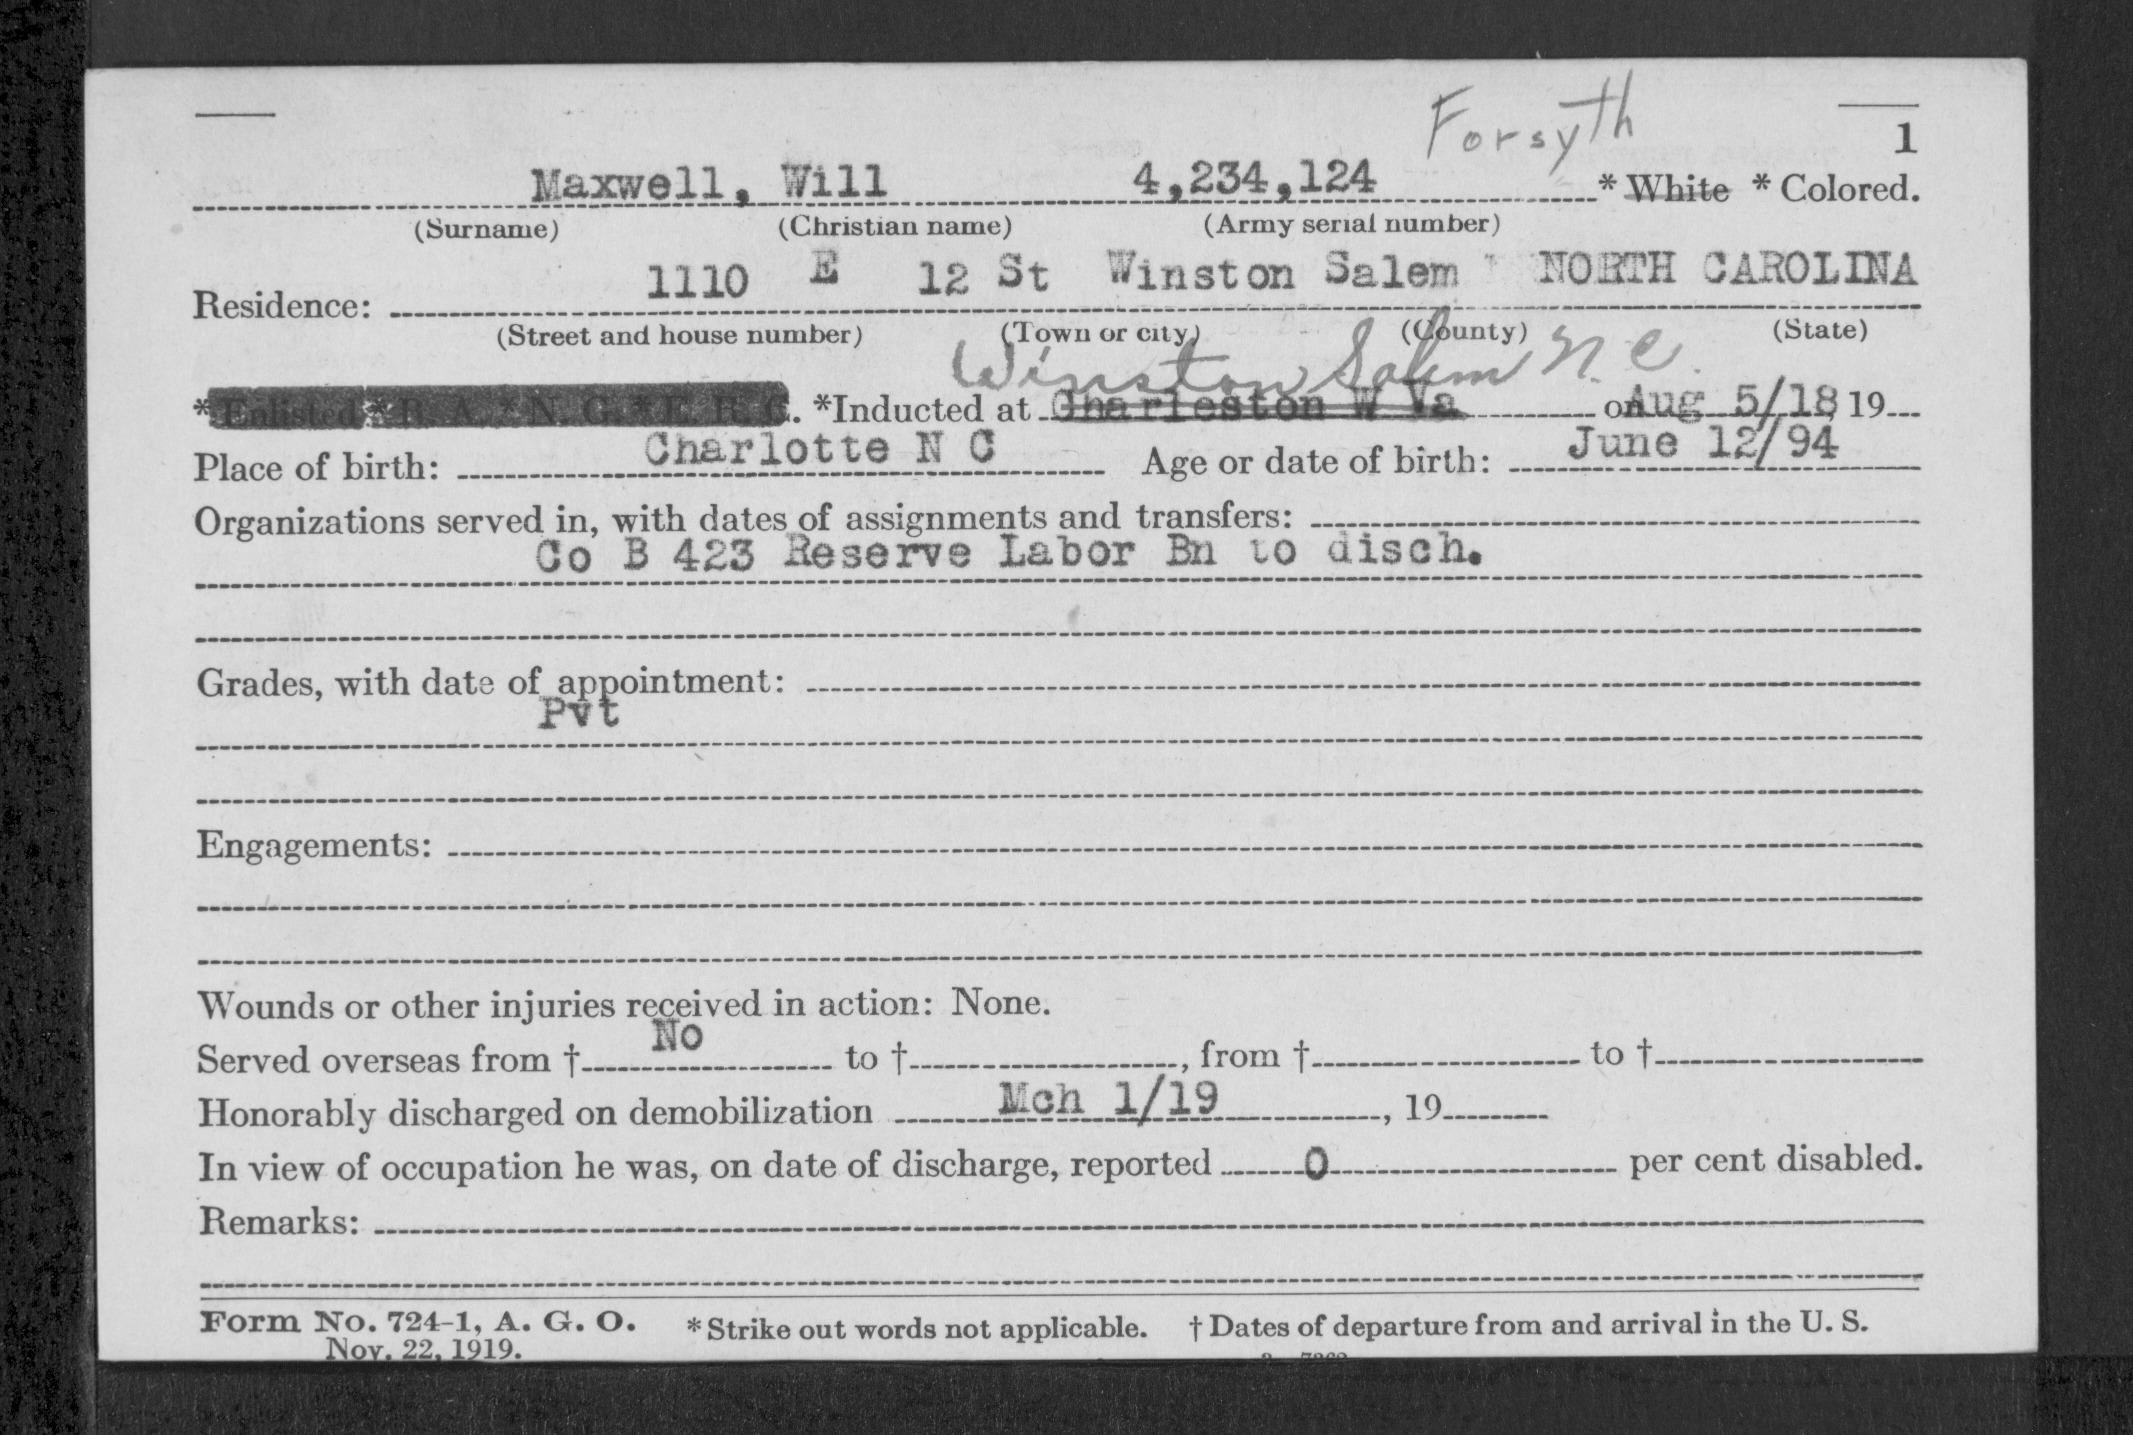 Forsyth
1
Maxwell, Will 4,234,124 * White * Colored.
(Surname) (Christian name) (Army serial number)
Residence: 1110 E 12 St Winston Salem NORTH CAROLINA
(Street and house number) (Town or city) (County) (State)
Winston Salem N. C.
* Enlisted * R. A. * N. G. * E. R. C. *Inducted at Charleston W Va on Aug 5/18, 19
Place of birth: Charlotte N C Age or date of birth: June 12/94
Organizations served in, with dates of assignments and transfers:
Co B 423 Reserve Labor Bn to disch.
Grades, with date of appointment:
Pvt
Engagements:
Wounds or other injuries received in action: None.
Served overseas from † No to †, from † to †
Honorably discharged on demobilization Mch 1/19, 19
In view of occupation he was, on date of discharge, reported 0 per cent disabled.
Remarks:
Form No. 724-1, A. G. O. * Strike out words not applicable. † Dates of departure from and arrival in the U. S.
Nov. 22, 1919.